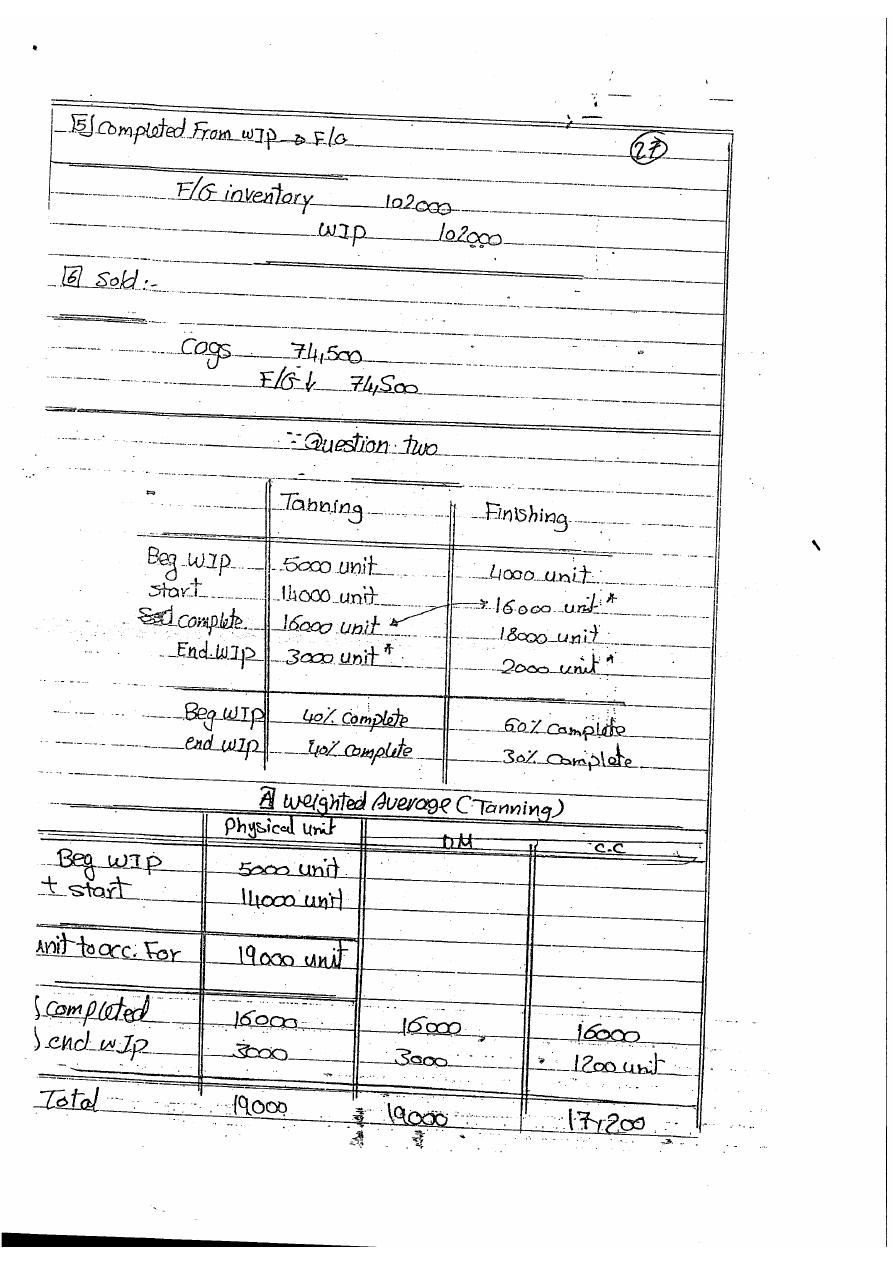 5 Completed From WIP → F/G
27
F/G inventory 102000
WIP 102000
6 Sold :-
Cogs 74,500
F/G ↓ 74,500
Question two
Tanning Finishing
Beg WIP 5000 unit 4000 unit
start 14000 unit 16000 unit *
complete 16000 unit * 18000 unit
End WIP 3000 unit * 2000 unit *
Beg WIP 40% Complete 60% Complete
end WIP 40% Complete 30% Complete
A Weighted Average (Tanning)
Physical unit DM C.C
Beg WIP 5000 unit
+ start 14000 unit
unit to acc. For 19000 unit
Completed 16000 16000 16000
end WIP 3000 3000 1200 unit
Total 19000 19000 17,200